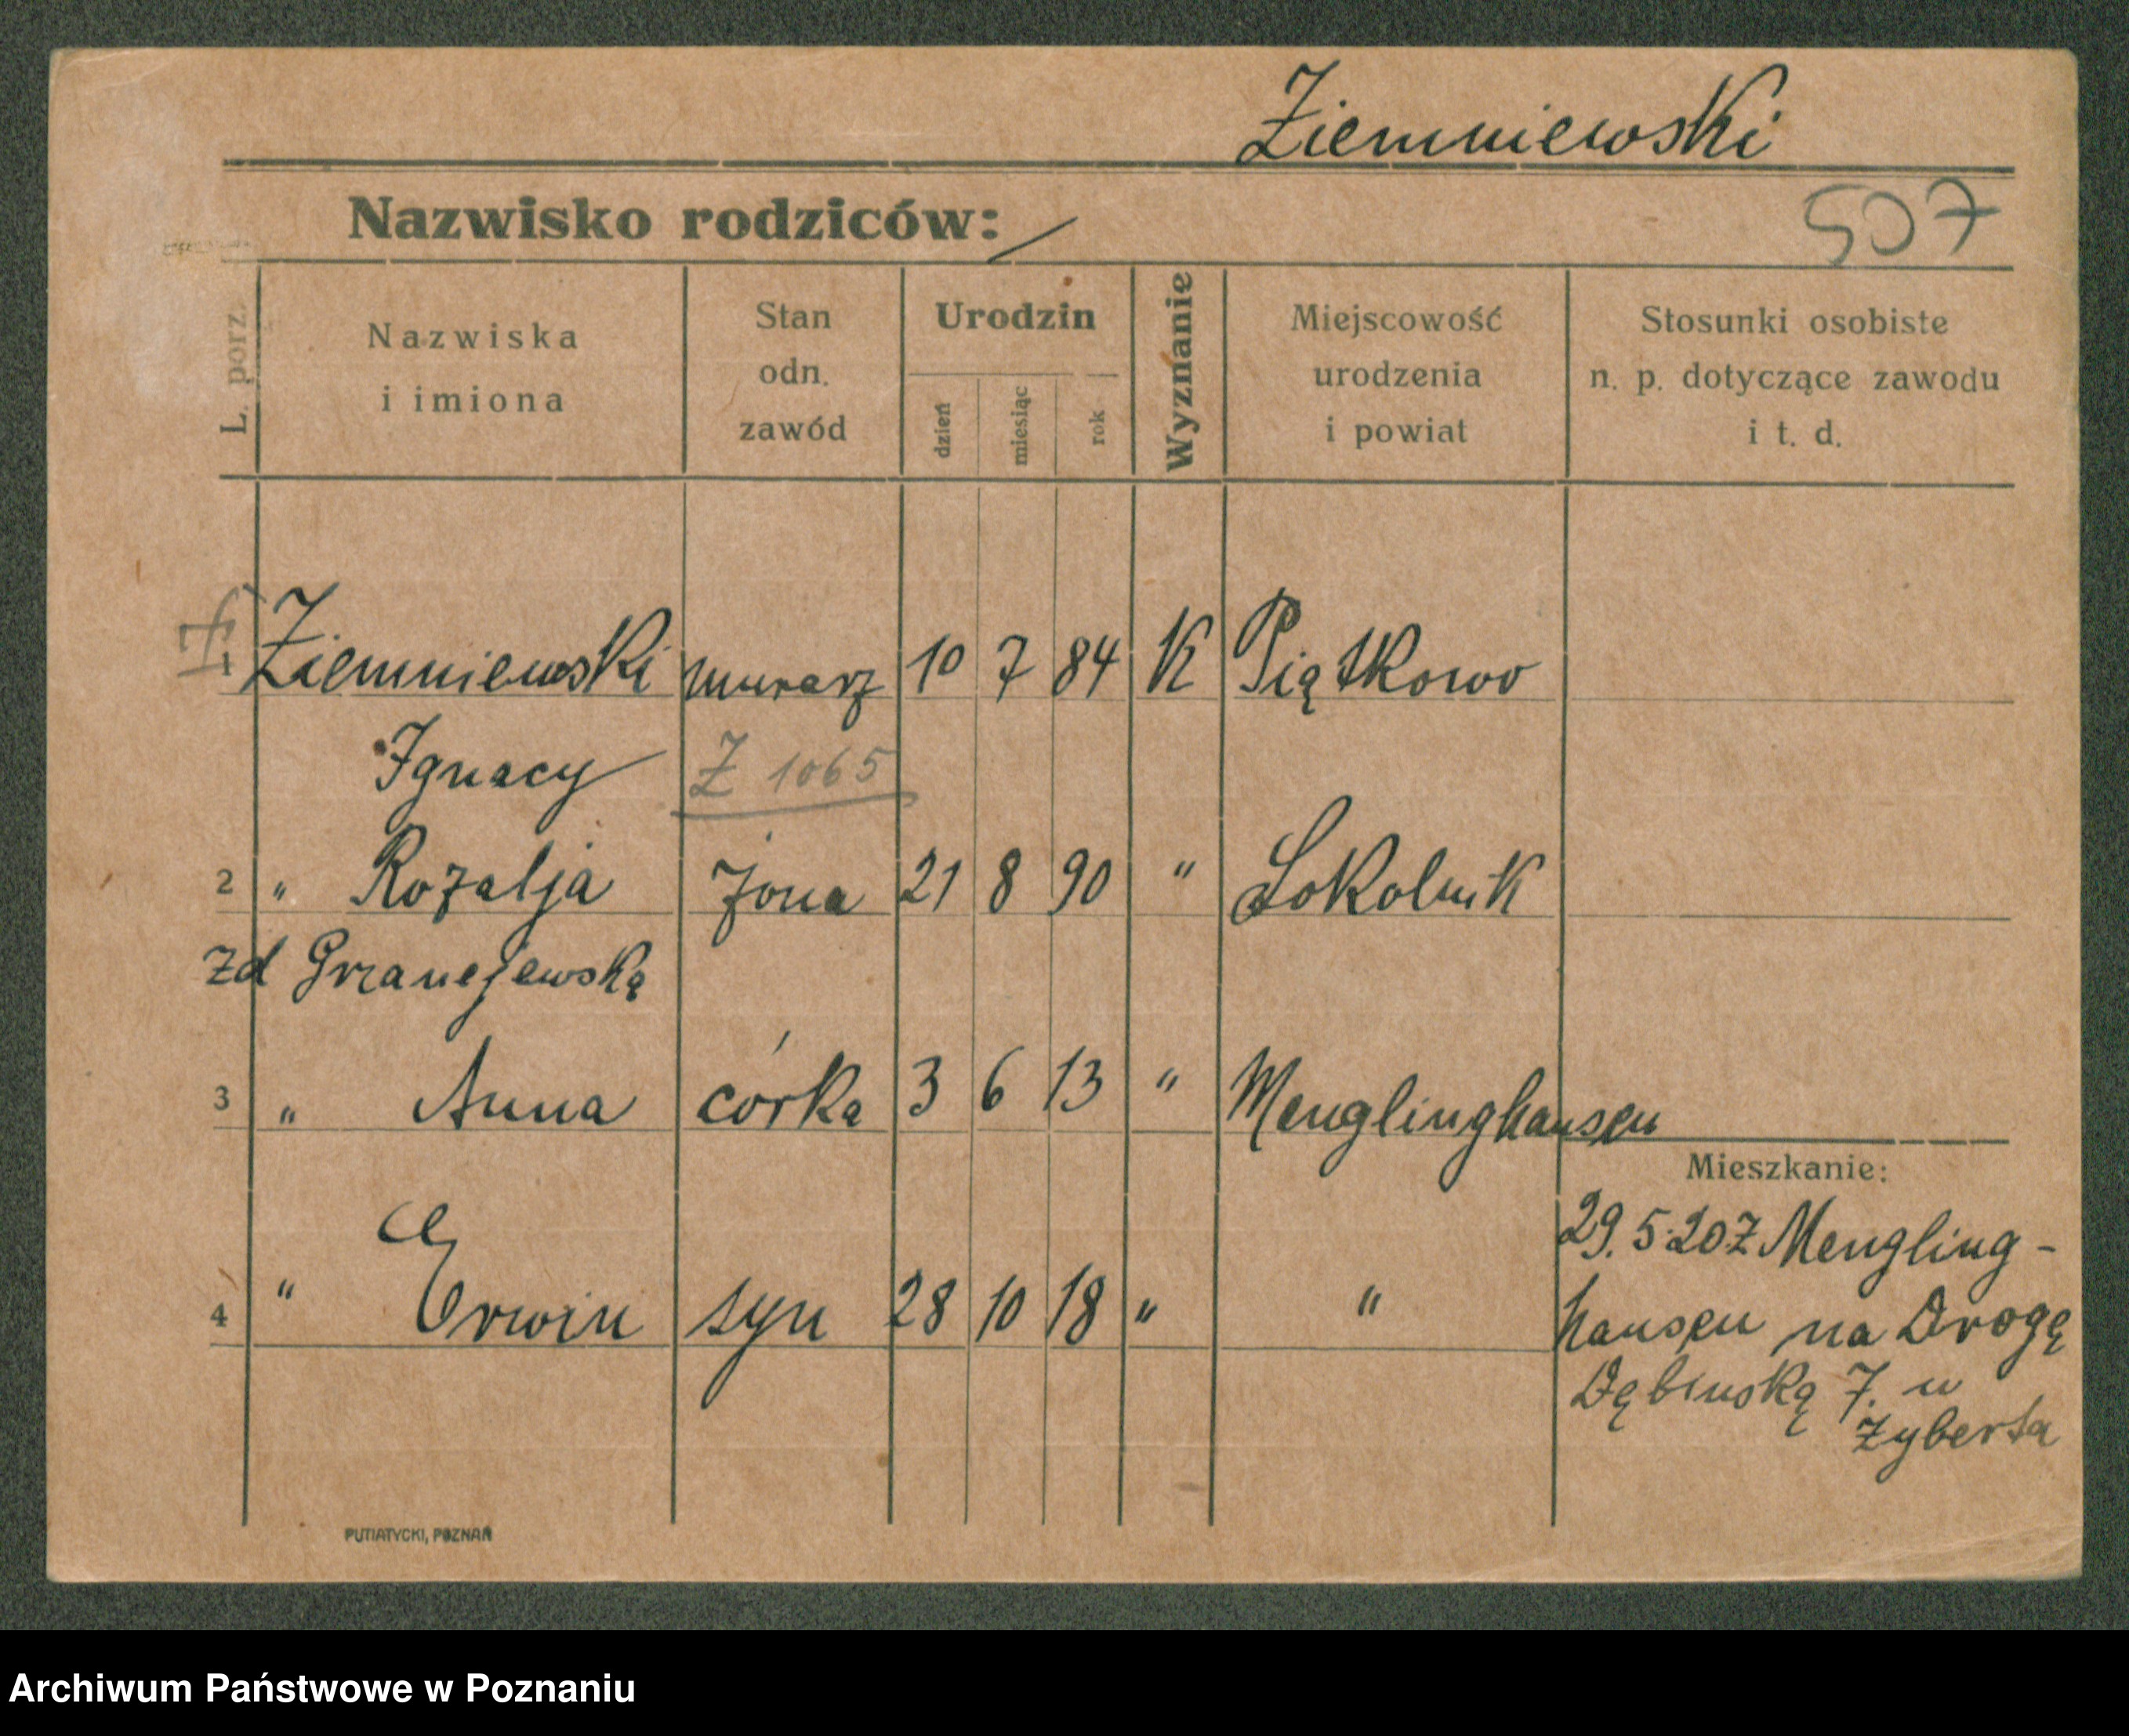 Ziemniewski
Nazwisko rodziców: /
507
L. porz.
Nazwiska i imiona
Stan odn. zawód
Urodzin
dzień
miesiąc
rok
Wyznanie
Miejscowość urodzenia i powiat
Stosunki osobiste n. p. dotyczące zawodu i t. d.
1 Ziemniewski murarz 10 7 84 K Piątkowo
Ignacy Z 1065
2 " Rozalja żona 21 8 90 " Sokolnik
zd
3 " Anna córka 3 6 13 " Menglinghausen
Mieszkanie:
4 " Erwin syn 28 10 18 " "
29.5.20 z Mengling-
hausen na Drogę
Dębińską 7. u
Zyberta
PUTIATYCKI, POZNAŃ
Archiwum Państwowe w Poznaniu